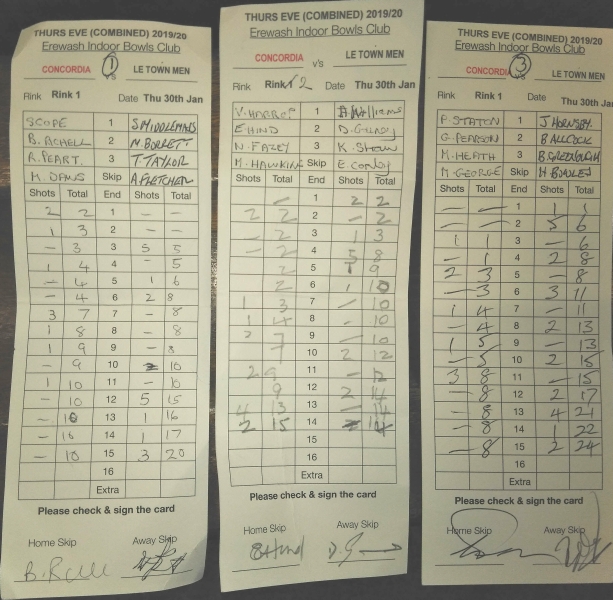 THURS EVE (COMBINED) 2019/20
Erewash Indoor Bowls Club
CONCORDIA 1 vs LE TOWN MEN
Rink Rink 1 Date Thu 30th Jan
SCOPE 1
B. ACHELL 2
A. PEART. 3 T TAYLOR
M. Skip A FLETCHER
Shots Total End Shots Total
2 2 1 - -
1 3 2 - -
- 3 3 5 5
1 4 4 - 5
- 4 5 1 6
- 4 6 2 8
3 7 7 - 8
1 8 8 - 8
1 9 9 - 8
- 9 10 2 10
1 10 11 - 10
- 10 12 5 15
- 10 13 1 16
- 10 14 1 17
- 10 15 3 20
16
Extra
Please check & sign the card
Home Skip Away Skip
THURS EVE (COMBINED) 2019/20
Erewash Indoor Bowls Club
CONCORDIA v's LE TOWN MEN
Rink Rink 1 2 Date Thu 30th Jan
V. HARROP 1 Williams
E HIND 2
N. FAZEY 3 K. Shaw
M. HAWKINS Skip E
Shots Total End Shots Total
- 1 2 2
2 2 2 - 2
- 2 3 1 3
- 2 4 5 8
2 5 1 9
2 6 1 10
1 3 7 - 10
1 4 8 - 10
7 9 - 10
7 10 2 12
2 9 11 - 12
9 12 2 14
4 13 13 - 14
2 15 14 14
15
16
Extra
Please check & sign the card
Home Skip Away Skip
THURS EVE (COMBINED) 2019/20
Erewash Indoor Bowls Club
CONCORDIA 3 vs LE TOWN MEN
Rink Rink 1 Date Thu 30th Jan
P. STATON 1 J HORNSBY
G. PEARSON 2 B ALLCOCK
M. HEATH 3
M. GEORGE Skip
Shots Total End Shots Total
- - 1 1 1
- - 2 5 6
1 1 3 - 6
- 1 4 2 8
2 3 5 - 8
- 3 6 3 11
1 4 7 - 11
- 4 8 2 13
1 5 9 - 13
- 5 10 2 15
3 8 11 - 15
- 8 12 2 17
- 8 13 4 21
- 8 14 1 22
- 8 15 2 24
16
Extra
Please check & sign the card
Home Skip Away Skip